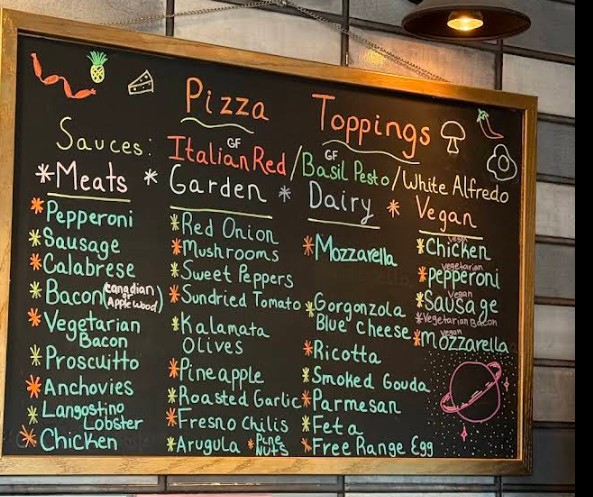 Pizza Toppings
Sauces: GF Italian Red / GF Basil Pesto / White Alfredo
* Meats * Garden * Dairy * Vegan
* Pepperoni
* Sausage
* Calabrese
* Bacon (canadian or Applewood)
* Vegetarian
Bacon
* Proscuitto
* Anchovies
* Langostino
Lobster
* Chicken
* Red Onion
* Mushrooms
* Sweet Peppers
* Sundried Tomato
* Kalamata
Olives
* Pineapple
* Roasted Garlic
* Fresno Chilis
* Arugula * Pine
Nuts
* Mozzarella
* Gorgonzola
Blue cheese
* Ricotta
* Smoked Gouda
* Parmesan
* Feta
* Free Range Egg
vegan
* Chicken
vegetarian
* Pepperoni
vegan
* Sausage
* Vegetarian Bacon
vegan
* Mozzarella